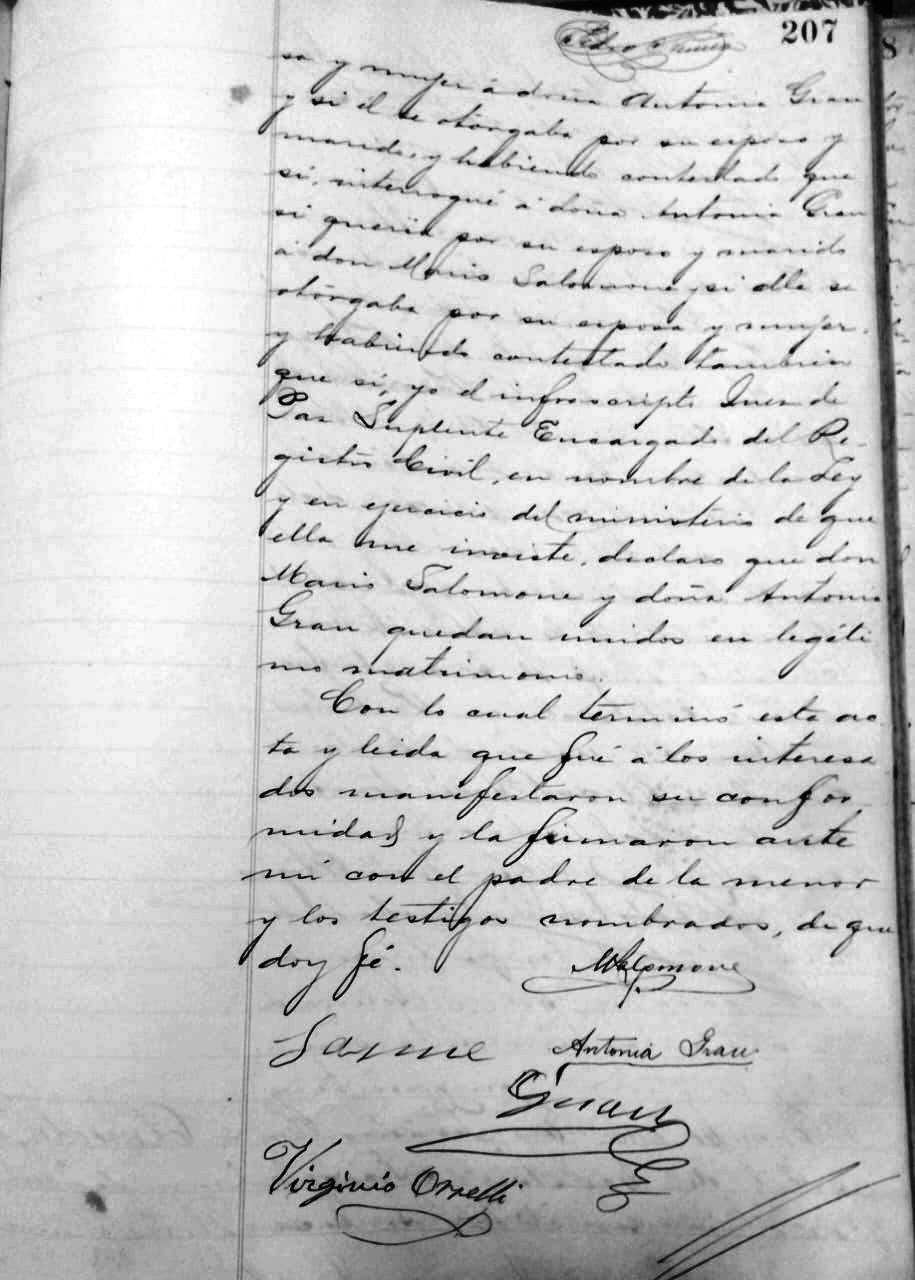 207
Pedro
sa y mujer á doña Antonia Grau
y si él se otorgaba por su esposo y
marido, y habiendo contestado que
si, interrogué á doña Antonia Grau
si queria por su esposo y marido
á don Mario Salomone y si ella se
otorgaba por su esposa y mujer,
y habiendo contestado tambien
que si, yo el infrascripto Juez de
Paz Suplente Encargado del Re-
gistro Civil, en nombre de la Ley
y en ejercicio del ministerio de que
ella me inviste, declaro que don
Mario Salomone y doña Antonia
Grau quedan unidos en legíti
mo matrimonio.
Con lo cual terminó esta ac
ta y leida que fué á los interesa
dos manifestaron su confor
midad y la firmaron ante
mi con el padre de la menor
y los testigos nombrados, de que
doy fé.
MSalomone
Jaime
Antonia Grau
Grau
Virginio